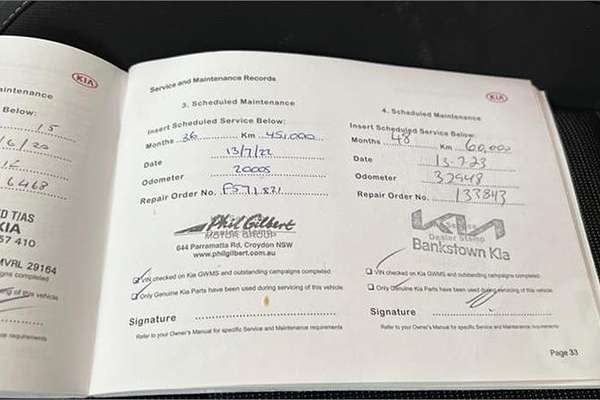 KIA
aintenance
Below:
15
/6/20
6468
D T/AS
KIA
57 410
MVRL 29164
aigns completed
ng of this vehicle
e requirements
Service and Maintenance Records
3. Scheduled Maintenance
Insert Scheduled Service Below:
Months 36 Km 45,000
Date 13/7/22
Odometer 20005
Repair Order No. F571831
Phil Gilbert
MOTOR GROUP
644 Parramatta Rd, Croydon NSW
www.philgilbert.com.au
VIN checked on Kia GWMS and outstanding campaigns completed
Only Genuine Kia Parts have been used during servicing of this vehicle
Signature
Refer to your Owner's Manual for specific Service and Maintenance requirements
KIA
4. Scheduled Maintenance
Insert Scheduled Service Below:
Months 48 Km 60,000
Date 13.7.23
Odometer 32948
Repair Order No. 133843
KIA
Dealer Stamp
Bankstown Kia
VIN checked on Kia GWMS and outstanding campaigns completed
Only Genuine Kia Parts have been used during servicing of this vehicle
Signature
Refer to your Owner's Manual for specific Service and Maintenance requirements
Page 33